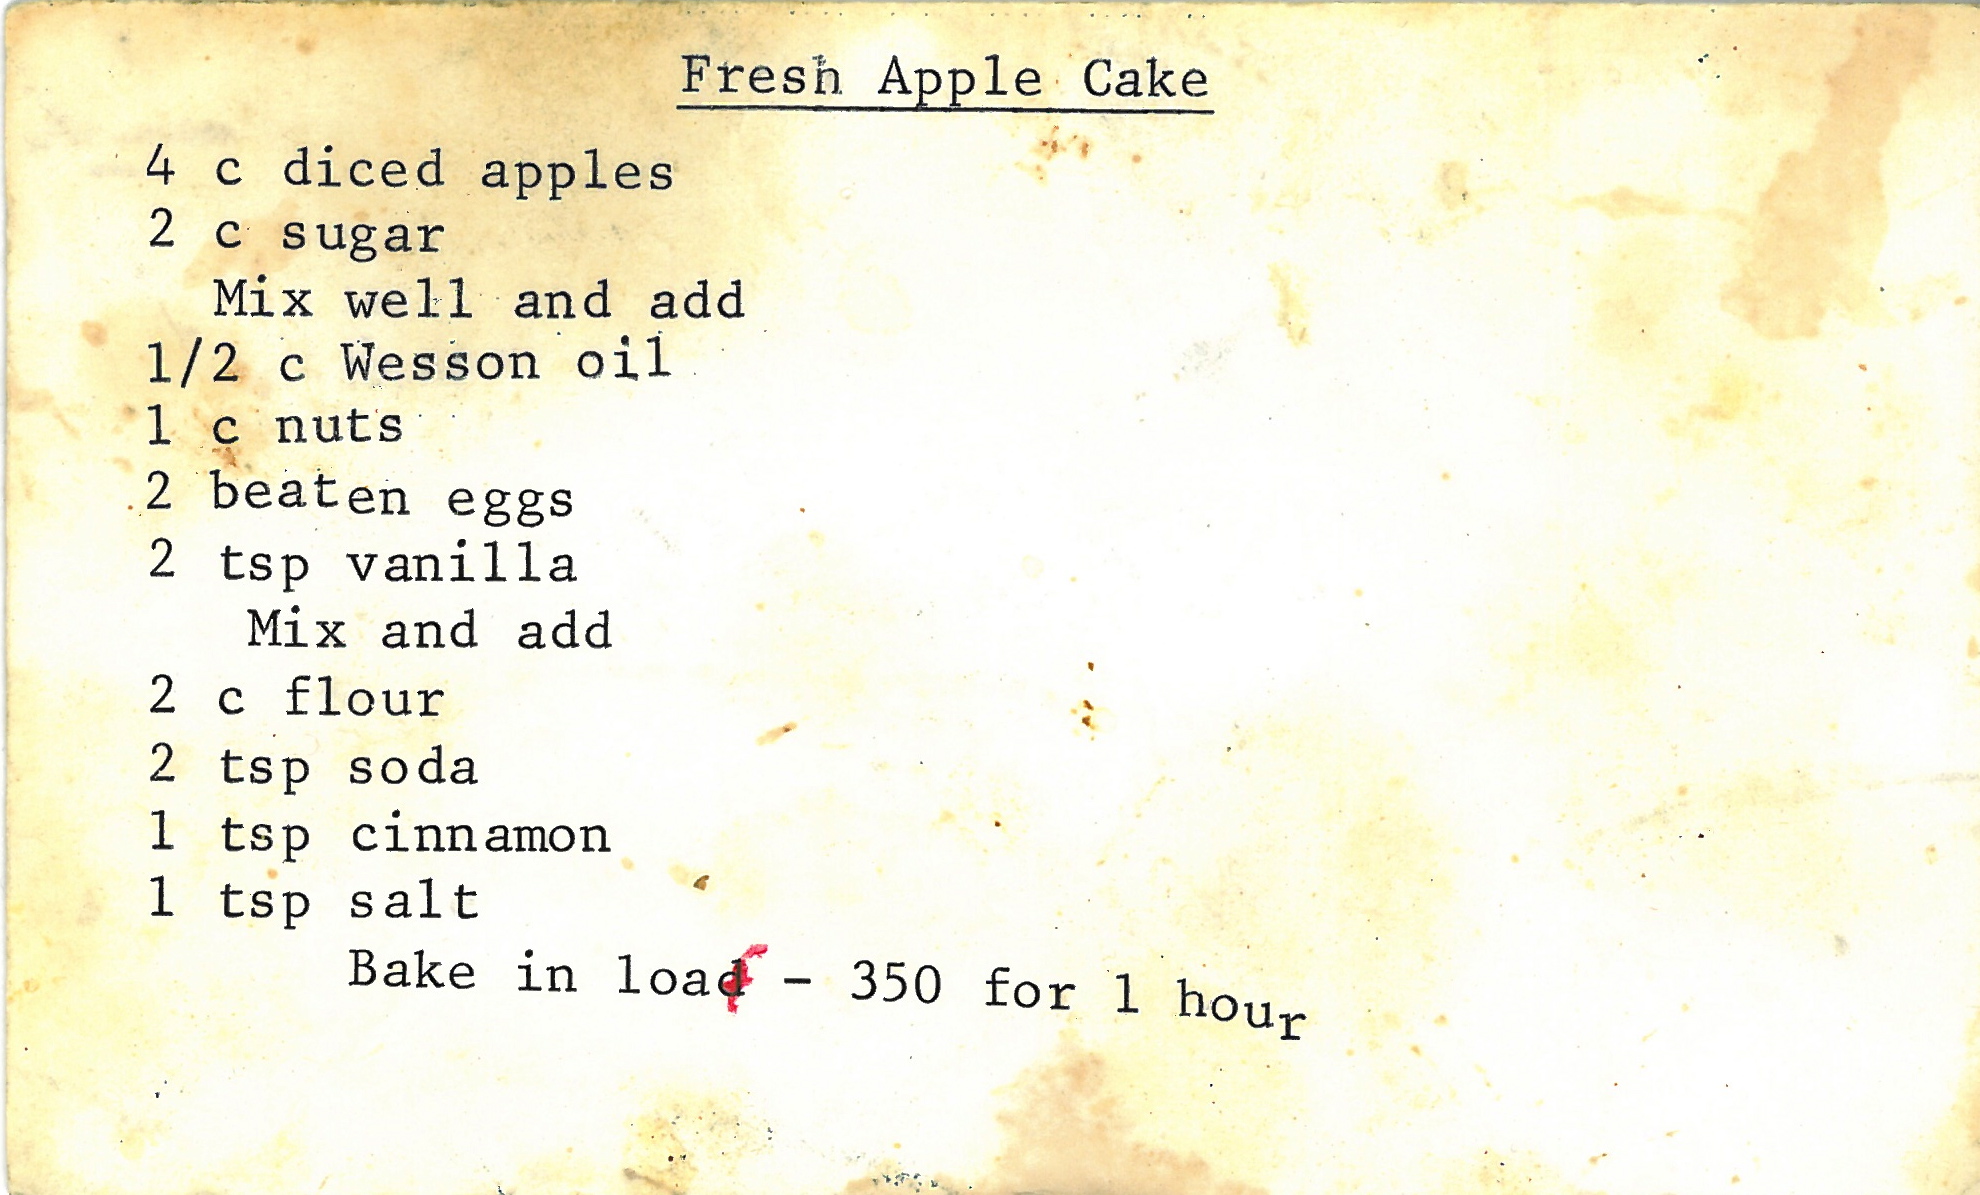 Fresh Apple Cake
4 c diced apples
2 c sugar
Mix well and add
1/2 c Wesson oil
1 c nuts
2 beaten eggs
2 tsp vanilla
Mix and add
2 c flour
2 tsp soda
1 tsp cinnamon
1 tsp salt
Bake in loaf - 350 for 1 hour